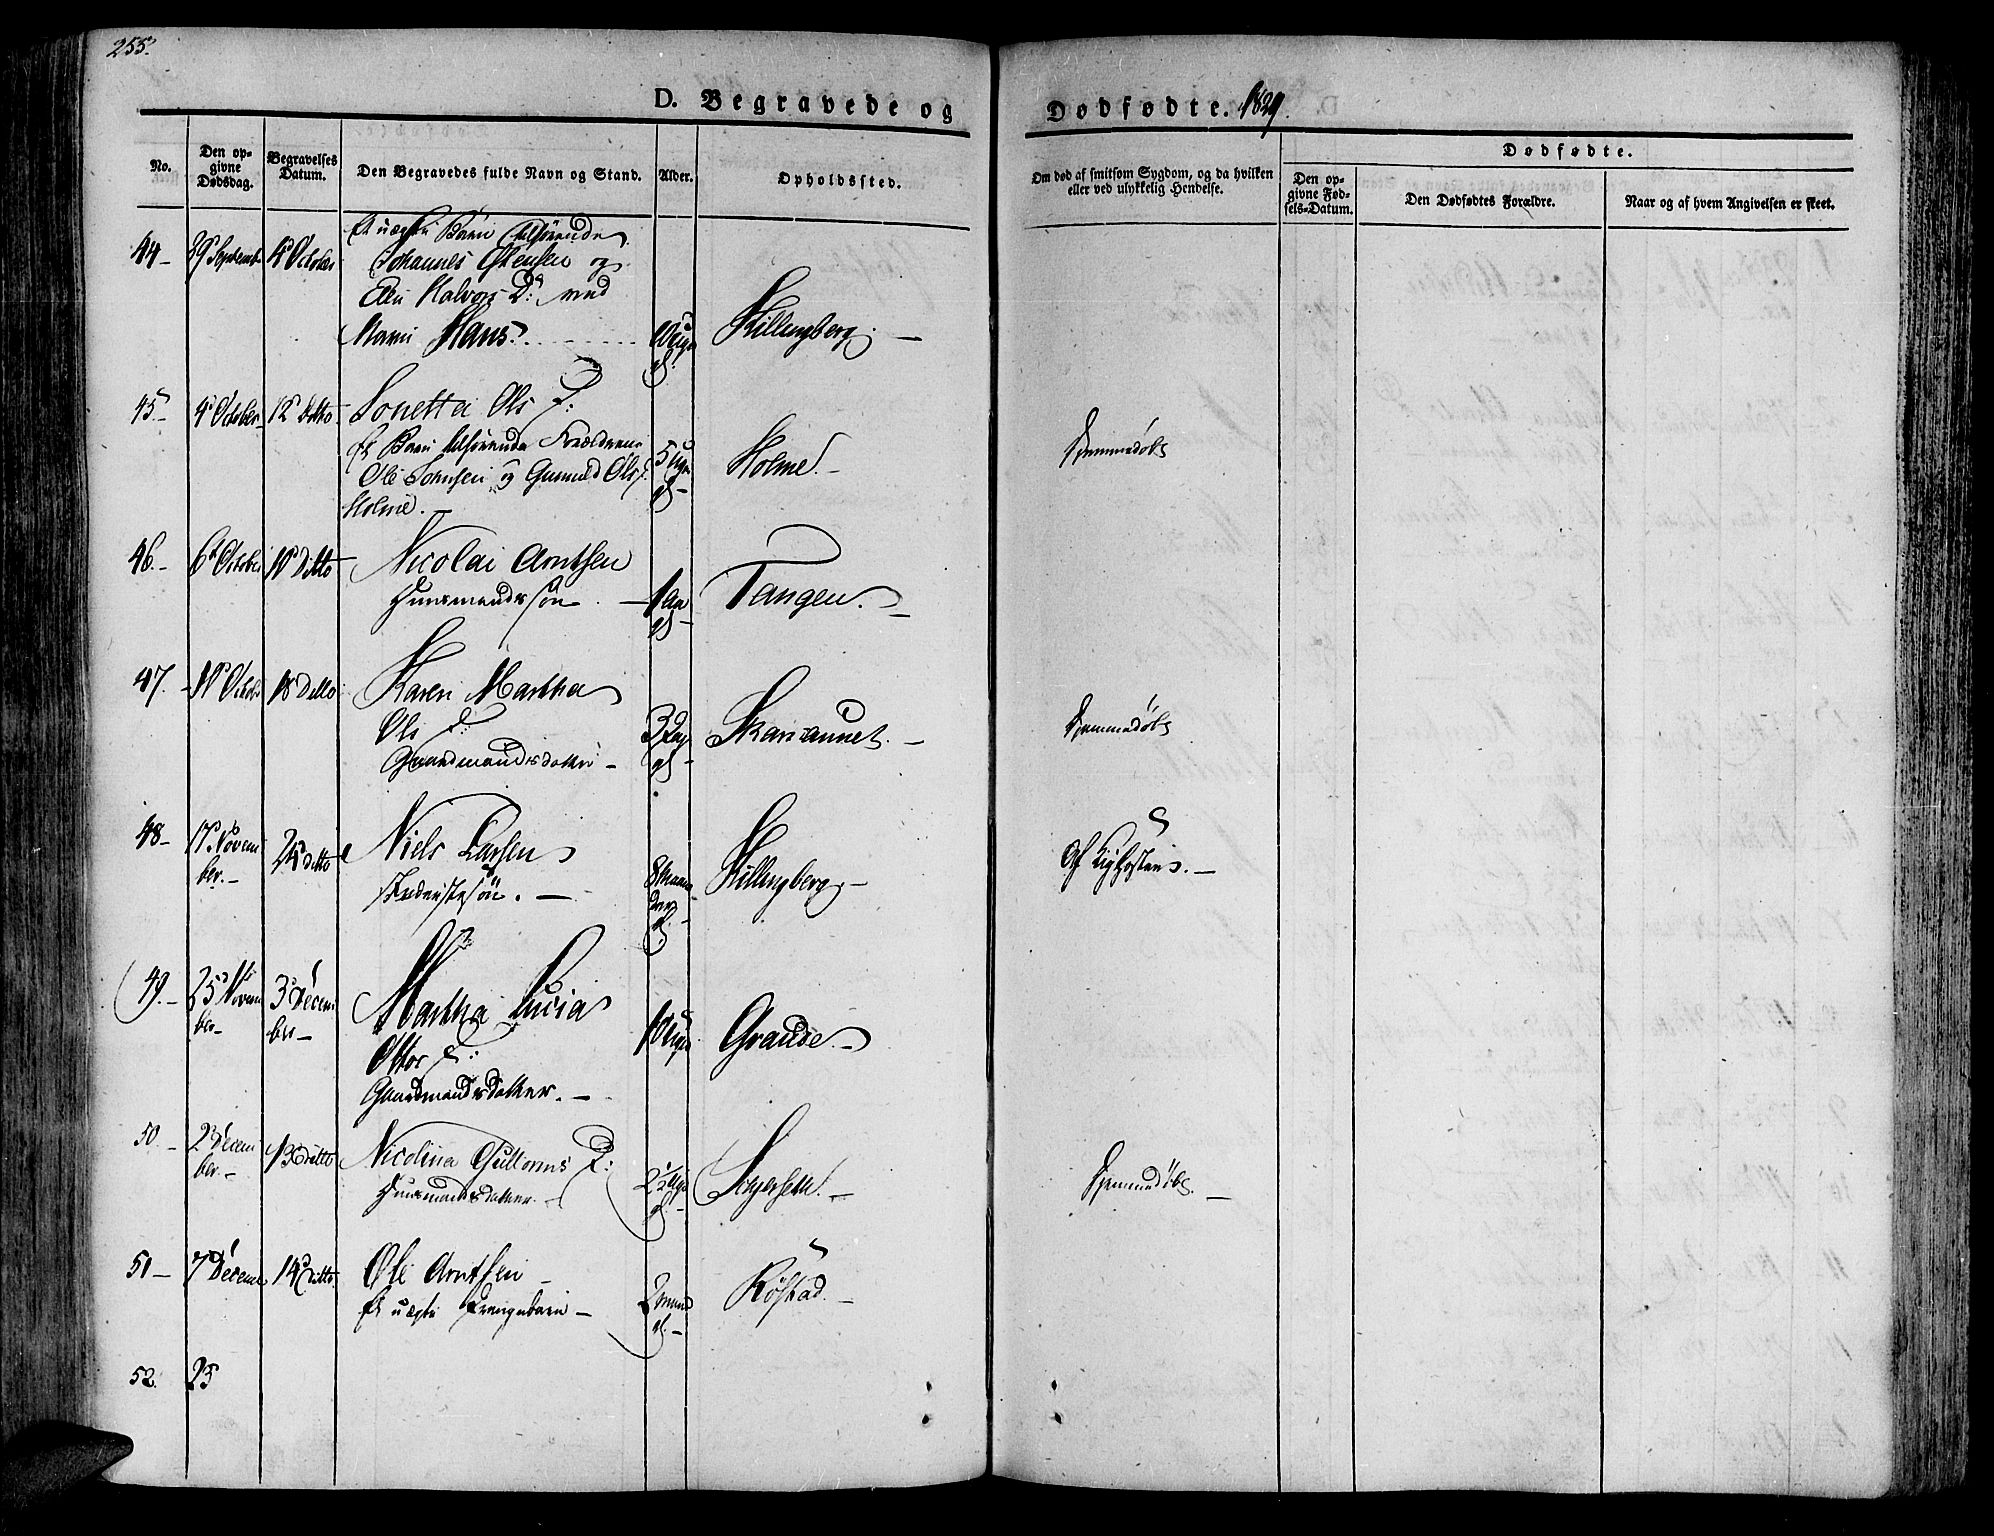 255.
D. Begravede og Dødfødte. 1829.
No.
Den opgivne Dødsdag.
Begravelses Datum.
Den Begravedes fulde Navn og Stand.
Alder.
Opholdssted.
Om død af smitsom Sygdom, og da hvilken
eller ved ulykkelig Hendelse.
Dødfødte.
Den opgivne Fødsels-Datum.
Den Dødfødtes Forældre.
Naar og af hvem Angivelsen er skeet.
44 29 Septemb. 4 October Et uægte Barn tilhørende
Johannes Ostensen og
Halvors D: med
Navn Hans. Killingberg.
45. 4 October 12 Ditto Sonetta Ols D:
Et Barn tilhørende Forældrene
Ole Johnsen og Gunnild Ols D:
Holme. 5 Uger gl. Holme. hjemmedøbt
46. 6 October Ditto Nicolai Arntsen
Huusmands søn 1 Aar gl. Tangen.
47. October 18 Ditto Karen Martha
Ols D:
Gaardmandsdatter 3 Dag gl. Skarvannet. hjemmedøbt
48 17 November 24 ditto Niels Larsen
søn. 8 Maaneder gl. Killingberg Af Kighosten.
49. 25 November 3 December Martha Lucia
Ottos D:
Gaardmandsdatter. Grande.
50. 2 December 13 ditto Nicolina Guttorms D:
Huusmandsdatter. gl. hjemmedøbt.
51 7 Decem 14 Ditto Ole Arntsen
Et uægte Drengebarn 2 gl. Røstad.
52. 25